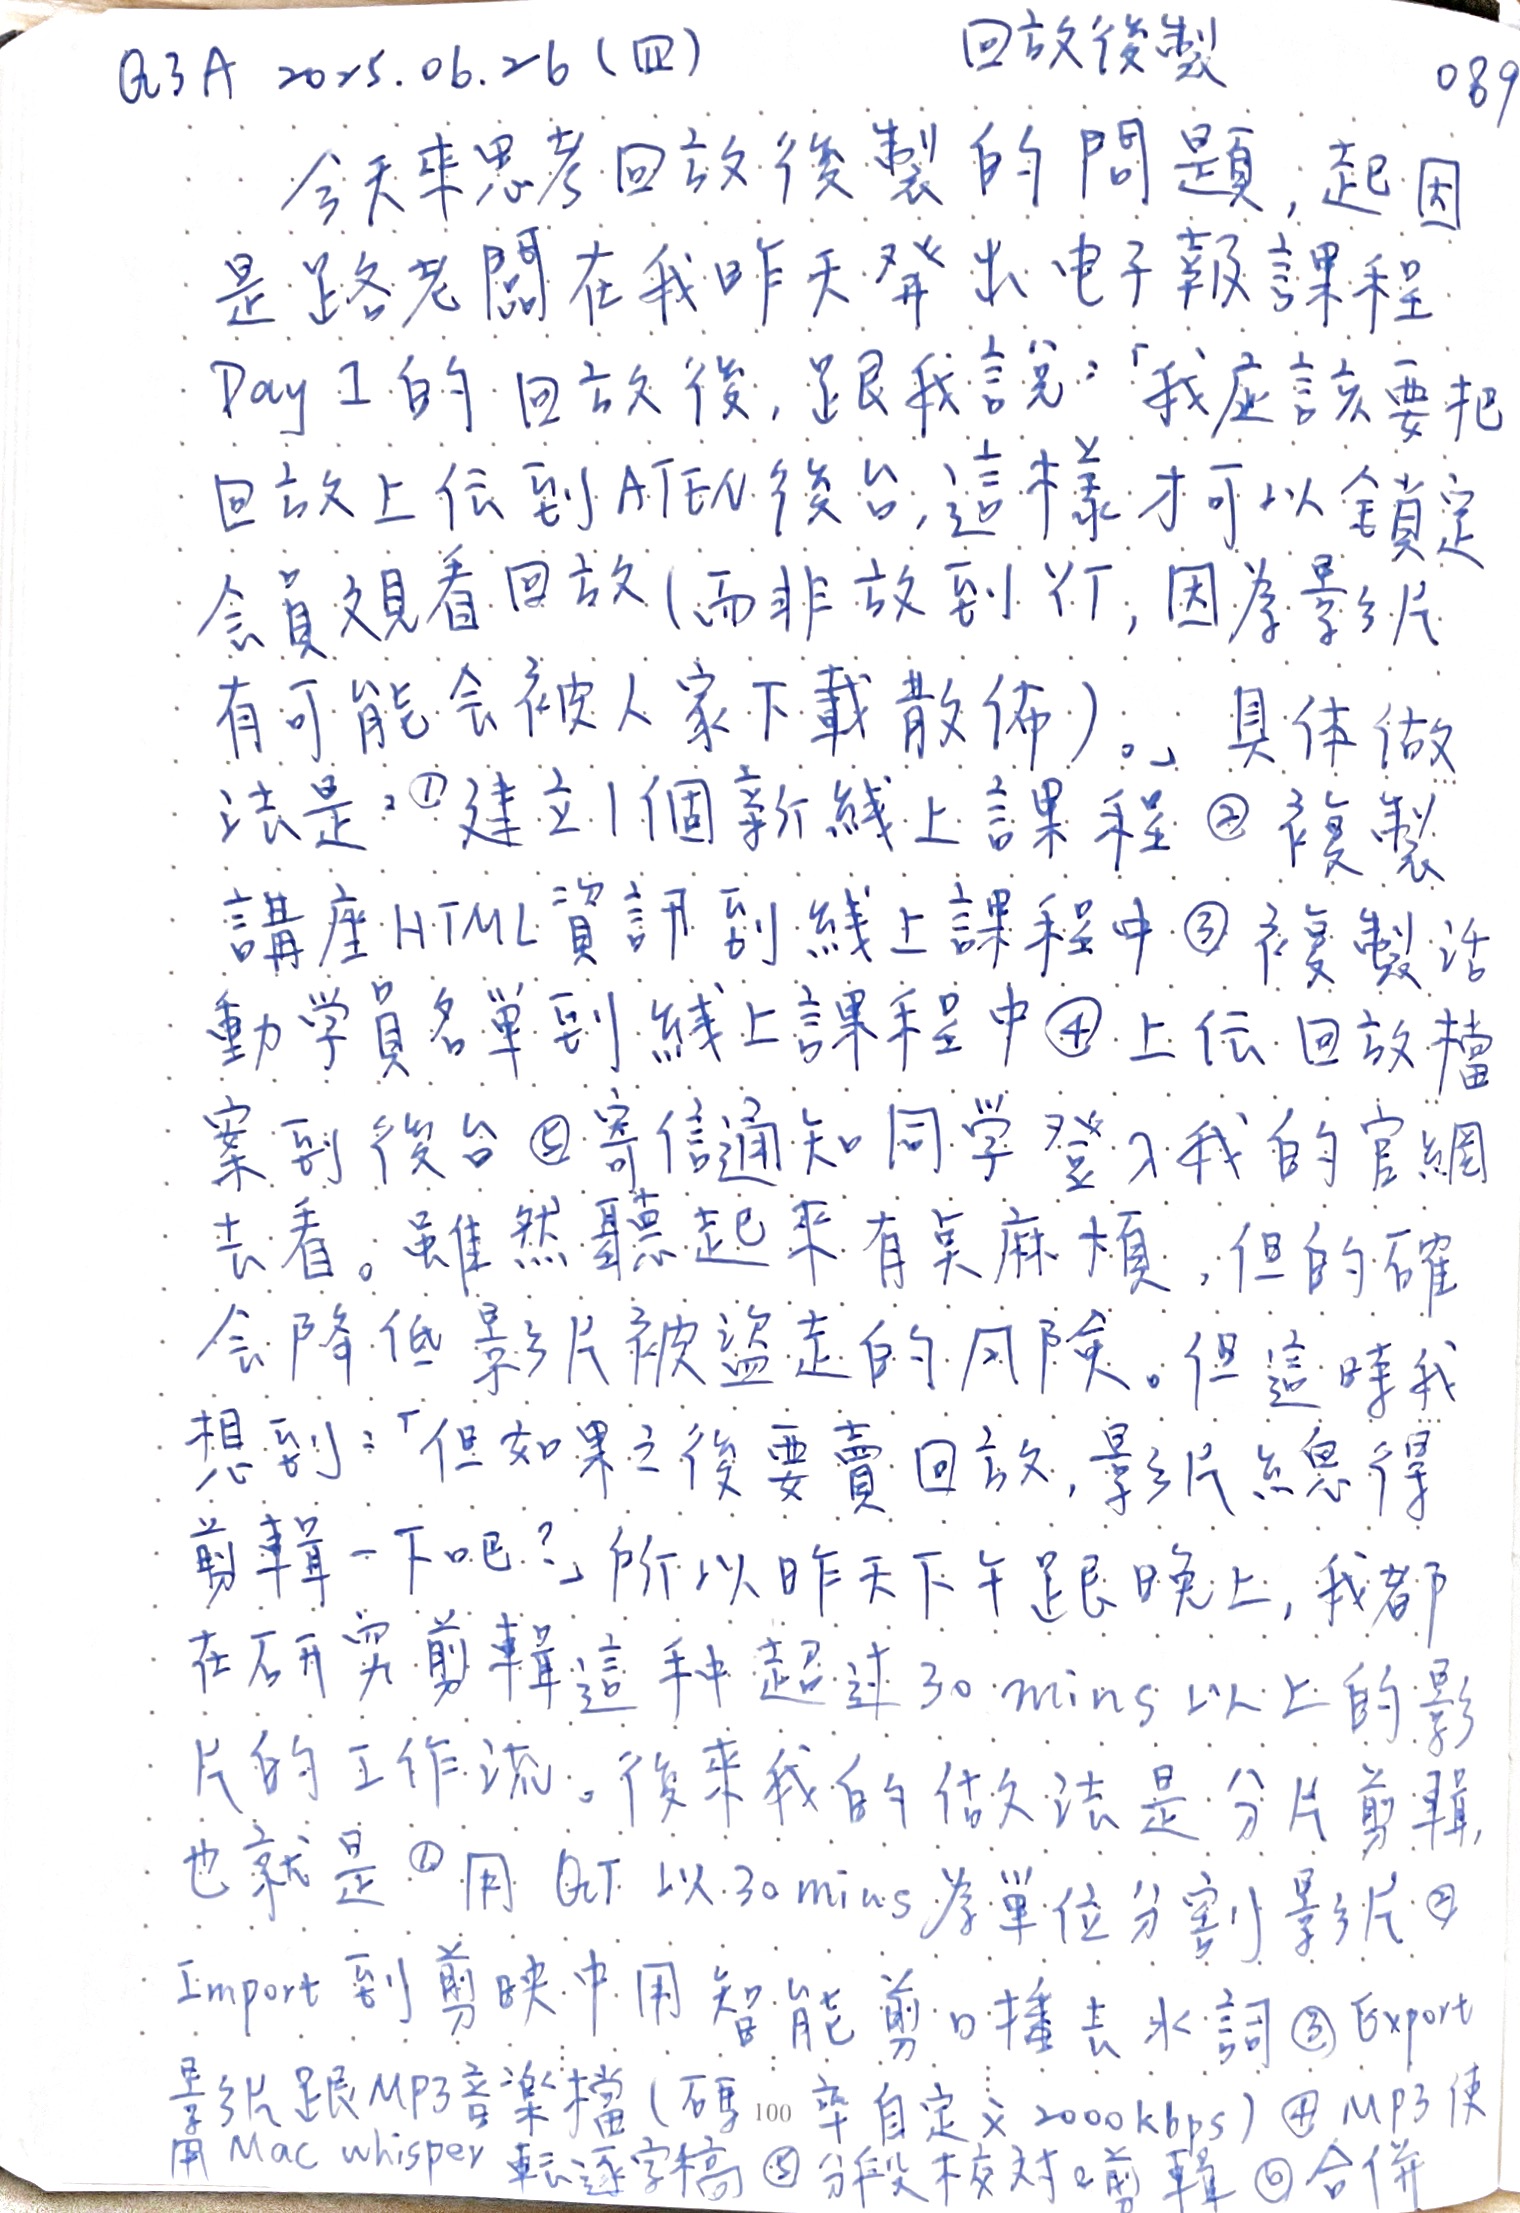 Q3A 2025.06.26(四) 回放後製 089
今天來思考回放後製的問題,起因
是路老闆在我昨天發出电子報課程
Day 1 的回放後,跟我說:「我应該要把
回放上伝到ATEN後台,這樣才可以鎖定
会員观看回放(而非放到YT,因為影片
有可能会被人家下載散佈)。」具体做
法是:①建立1個新線上課程②複製
講座HTML資訊到線上課程中③複製活
動学員名單到線上課程中④上伝回放檔
案到後台⑤寄信通知同学登入我的官網
去看。雖然聽起來有点麻煩,但的確
会降低影片被盜走的风險。但這時我
想到:「但如果之後要賣回放,影片総得
剪輯一下吧?」所以昨天下午跟晚上,我都
在研究剪輯這种超过30 mins 以上的影
片的工作流。後來我的做法是分片剪輯,
也就是①用 QT 以30 mins為單位分割影片②
Import 到剪映中用智能剪口播去水詞③Export
影片跟MP3音楽檔(碼率自定义2000kbps)④MP3使
100
用Mac whisper 転逐字稿⑤分段校対&剪輯⑥合併